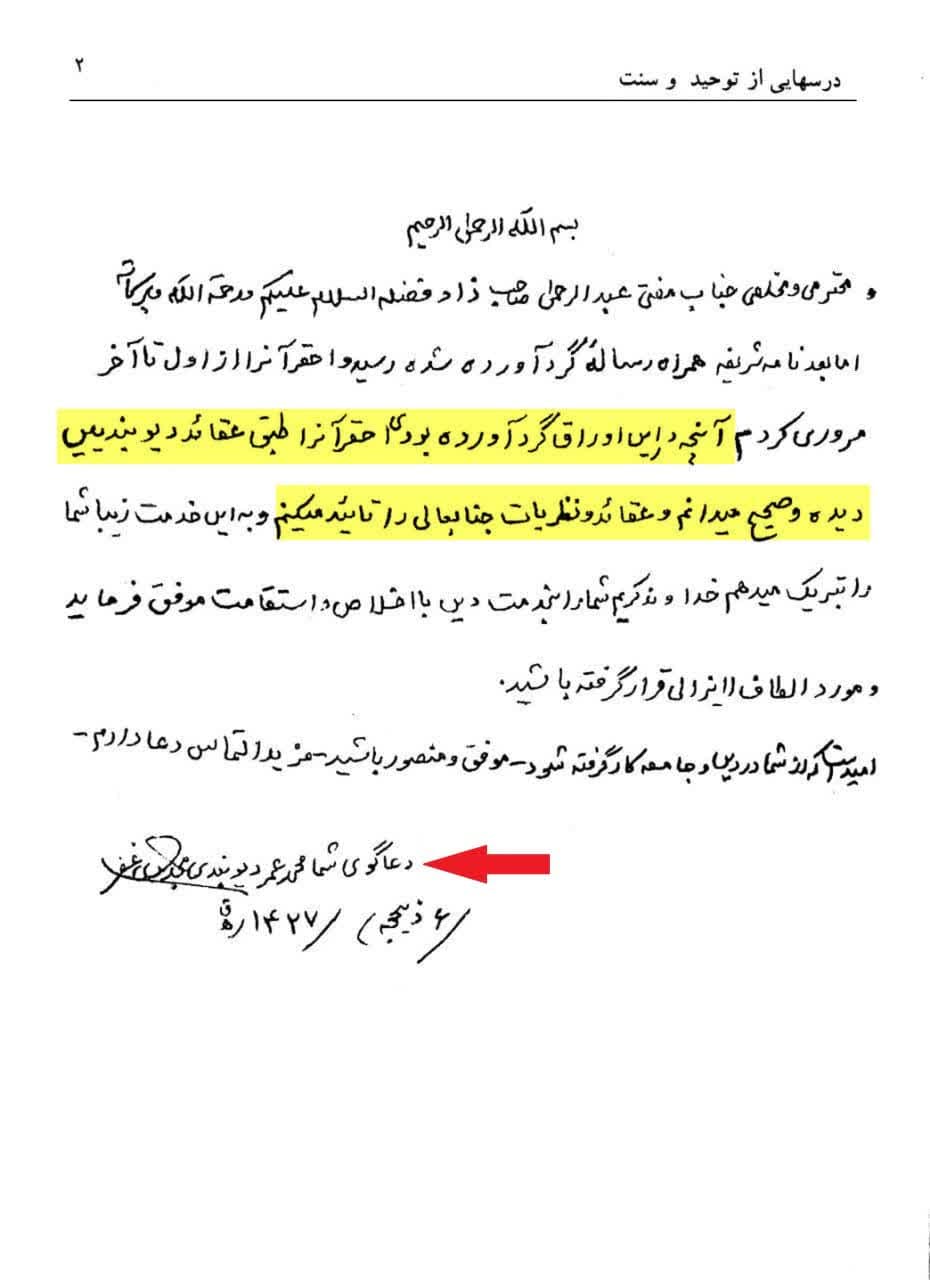 درسهایی از توحید و سنت
۲
بسم الله الرحمن الرحیم
محترمی و مخلصی جناب مفتی عبد الرحمن صاحب زاد فضله السلام علیکم ورحمة الله وبرکاته
اما بعد نامه شریفه همراه رسالهٔ گرد آورده شده رسید و احقر آنرا از اول تا آخر
مروری کردم آنچه در این اوراق گرد آورده بودی احقر آنرا طبق عقائد دیوبندیین
دیده و صحیح میدانم و عقائد و نظریات جنابعالی را تائید میکنم و به این خدمت زیبا شما
را تبریک میدهم خداوند کریم شما را بخدمت دین با اخلاص و استقامت موفق فرماید
و مورد الطاف ایزالی قرار گرفته باشید.
امید است که از شما در دین و جامعه کار گرفته شود - موفق و منصور باشید - مزید التماس دعا دارم -
دعاگوی شما محمد عمر دیوبندی
۶ / ذیحجه / ۱۴۲۷ ه ق